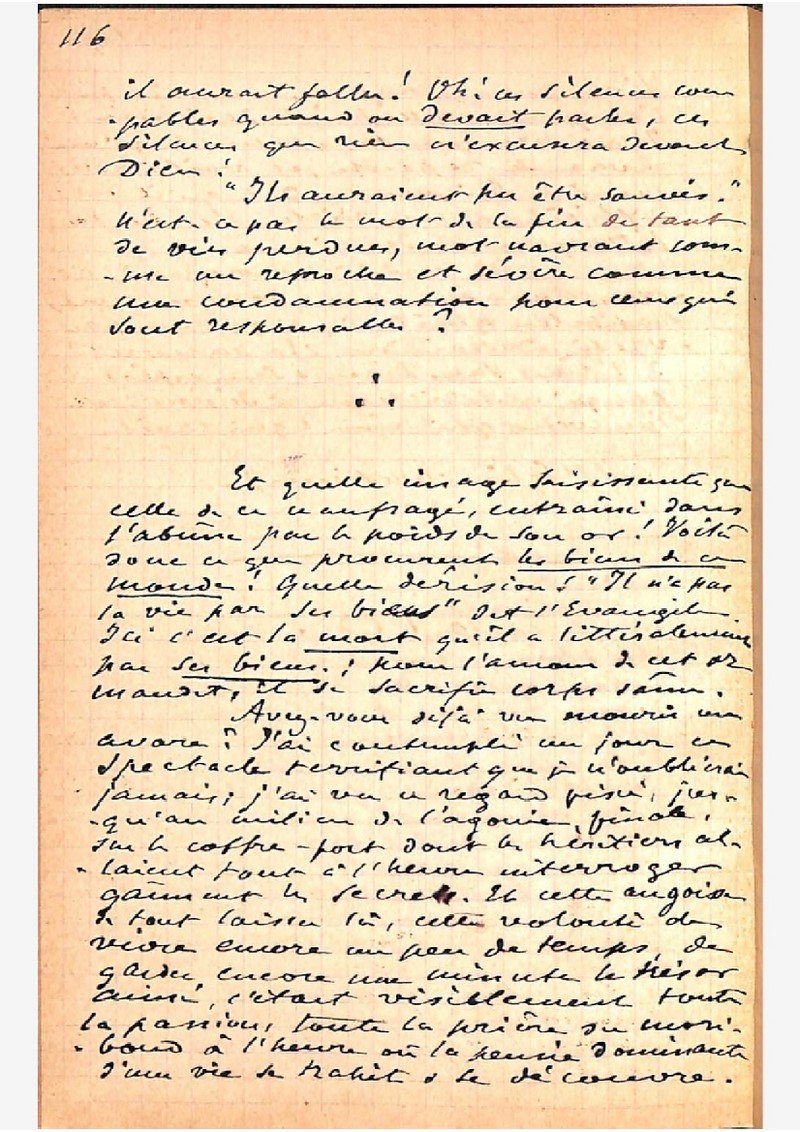 116
il aurait fallu ! Oh ! ces silences cou-
-pables quand on devait parler, ces
silences que rien n'excusera devant
Dieu !
"Ils auraient pu être sauvés."
N'est-ce pas le mot de la fin de tant
de vies perdues, mot navrant com-
-me un reproche et sévère comme
une condamnation pour ceux qui
sont responsables ?
∴
Et quelle image saisissante que
celle de ce naufragé, entraîné dans
l'abîme par le poids de son or ! Voilà
donc ce que procurent les biens de ce
monde ! Quelle dérision ! "Il n'a pas
la vie par ses biens" dit l'Evangile.
Ici c'est la mort qu'il a littéralement
par ses biens. ; pour l'amour de cet or
maudit, il se sacrifie corps et âme.
Avez-vous déjà vu mourir un
avare ? J'ai contemplé un jour ce
spectacle terrifiant que je n'oublierai
jamais ; j'ai vu ce regard fixé, jus-
-qu'au milieu de l'agonie finale,
sur le coffre-fort dont les héritiers al-
-laient tout à l'heure interroger
gaîment les secrets. Et cette angoisse
de tout laisser là, cette volonté de
vivre encore un peu de temps, de
garder encore une minute le trésor
aimé, c'était visiblement toute
la passion, toute la prière du mori-
-bond à l'heure où la pensée dominante
d'une vie se trahit & se découvre.